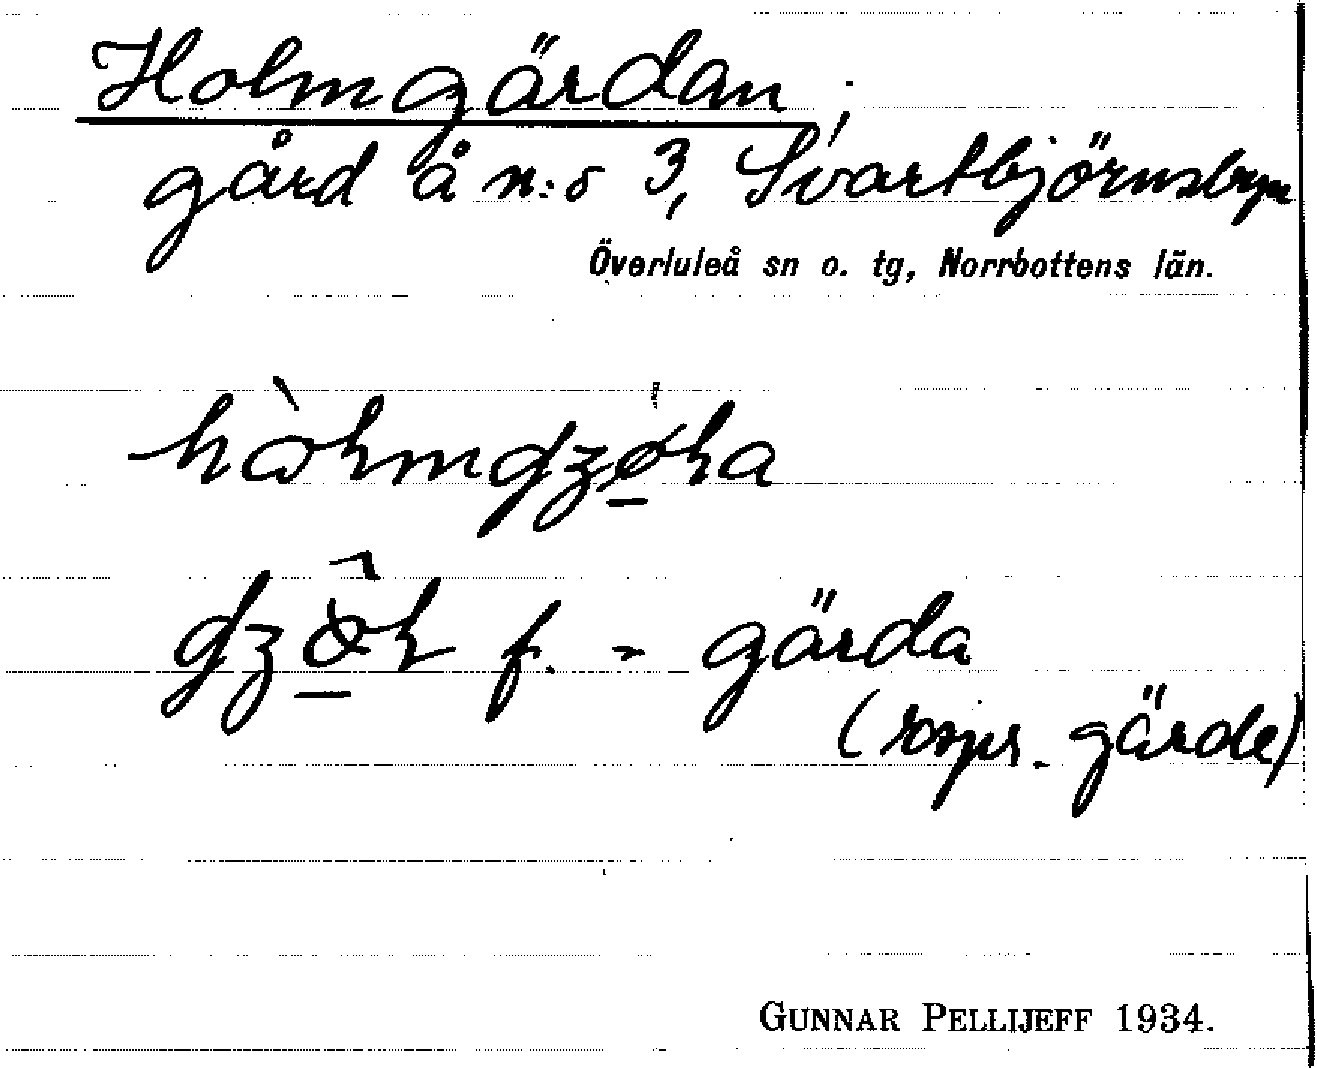 Holmgärdan;
gård å n:o 3, Svartbjörnsbyn
Överluleå sn o. tg, Norrbottens län.
f. = gärda
(rspr. gärde)
GUNNAR PELLIJEFF 1934.